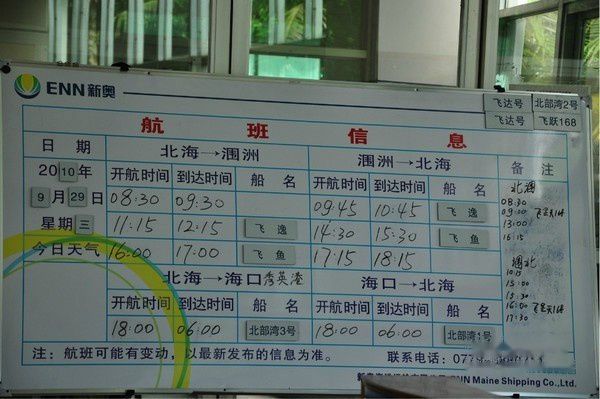 ENN新奥
飞达号 北部湾2号
飞达号 飞跃168
航班信息
日期 北海→涠洲 涠洲→北海 备注
2010年 开航时间 到达时间 船名 开航时间 到达时间 船名
9月29日 08:30 09:30 09:45 10:45 飞逸
星期三 11:15 12:15 飞逸 14:30 15:30 飞鱼
今日天气 16:00 17:00 飞鱼 17:15 18:15
北海→海口秀英港 海口→北海
开航时间 到达时间 船名 开航时间 到达时间 船名
18:00 06:00 北部湾3号 18:00 06:00 北部湾1号
北涠
08:30
09:00
13:00
16:15
涠北
10:15
15:00
15:30
16:00
17:30
注：航班可能有变动，以最新发布的信息为准。 联系电话：077
ENN Maine Shipping Co.,Ltd.